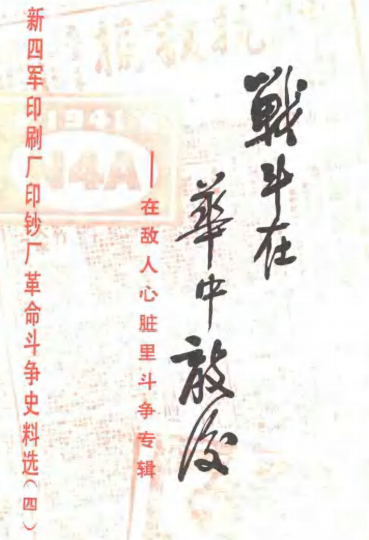 战斗在
华中敌后
——在敌人心脏里斗争专辑
新四军印刷厂印钞厂革命斗争史料选(四)